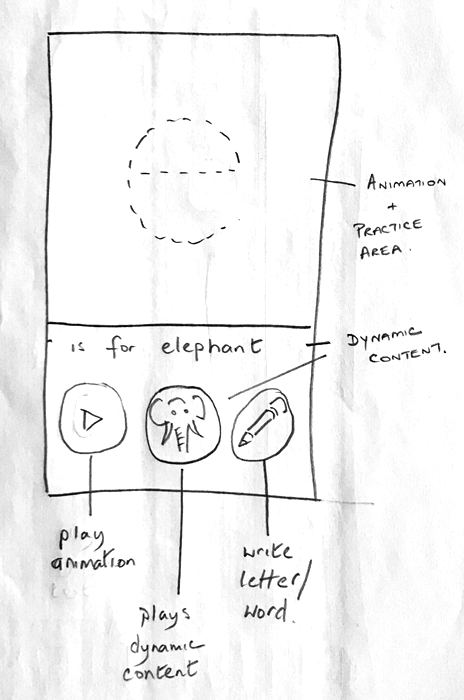 ANIMATION
+
PRACTICE
AREA.
is for elephant
DYNAMIC
CONTENT.
play
animation
plays
dynamic
content
write
letter/
word.